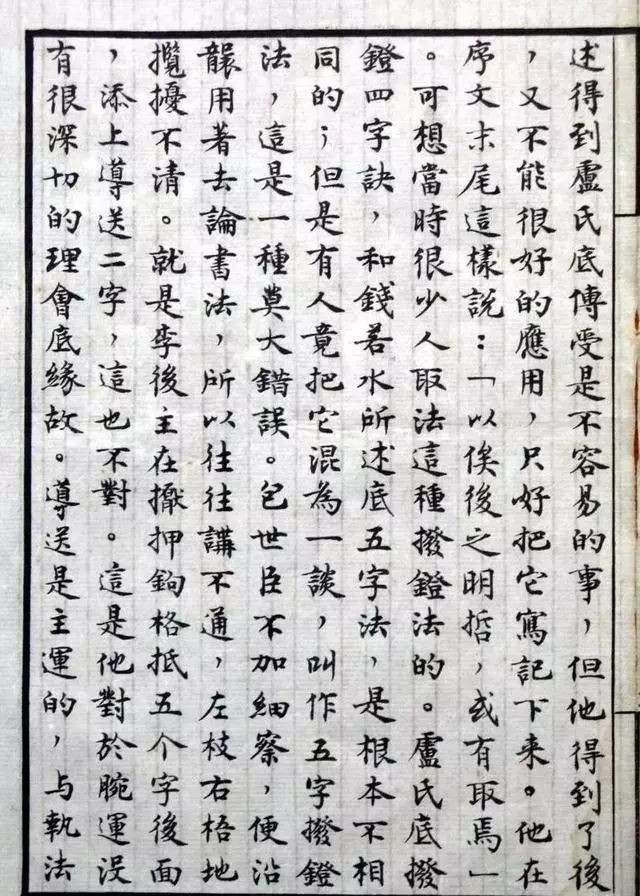 述得到盧氏底傳受是不容易的事，但他得到了後
，又不能很好的應用，只好把它寫記下来。他在
序文末尾這樣說：「以俟後之明哲，或有取焉」
。可想當時很少人取法這種撥鐙法的。盧氏底撥
鐙四字訣，和錢若水所述底五字法，是根本不相
同的；但是有人竟把它混為一談，叫作五字撥鐙
法，這是一種莫大錯誤。包世臣不加細察，便沿
襲用著去論書法，所以往往講不通，左枝右梧地
攪擾不清。就是李後主在擫押鉤格抵五个字後面
，添上導送二字，這也不對。這是他對於腕運没
有很深切的理會底緣故。導送是主運的，与執法